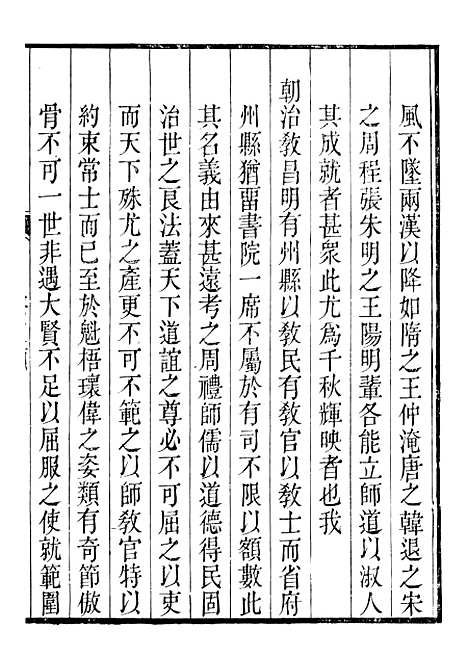 風不墜兩漢以降如隋之王仲淹唐之韓退之宋
之周程張朱明之王陽明輩各能立師道以淑人
其成就者甚衆此尤爲千秋輝映者也我
朝治敎昌明有州縣以敎民有敎官以敎士而省府
州縣猶畱書院一席不屬於有司不限以額數此
其名義由來甚遠考之周禮師儒以道德得民固
治世之良法蓋天下道誼之尊必不可屈之以吏
而天下殊尤之產更不可不範之以師敎官特以
約束常士而已至於魁梧瓌偉之姿類有奇節傲
骨不可一世非遇大賢不足以屈服之使就範圍